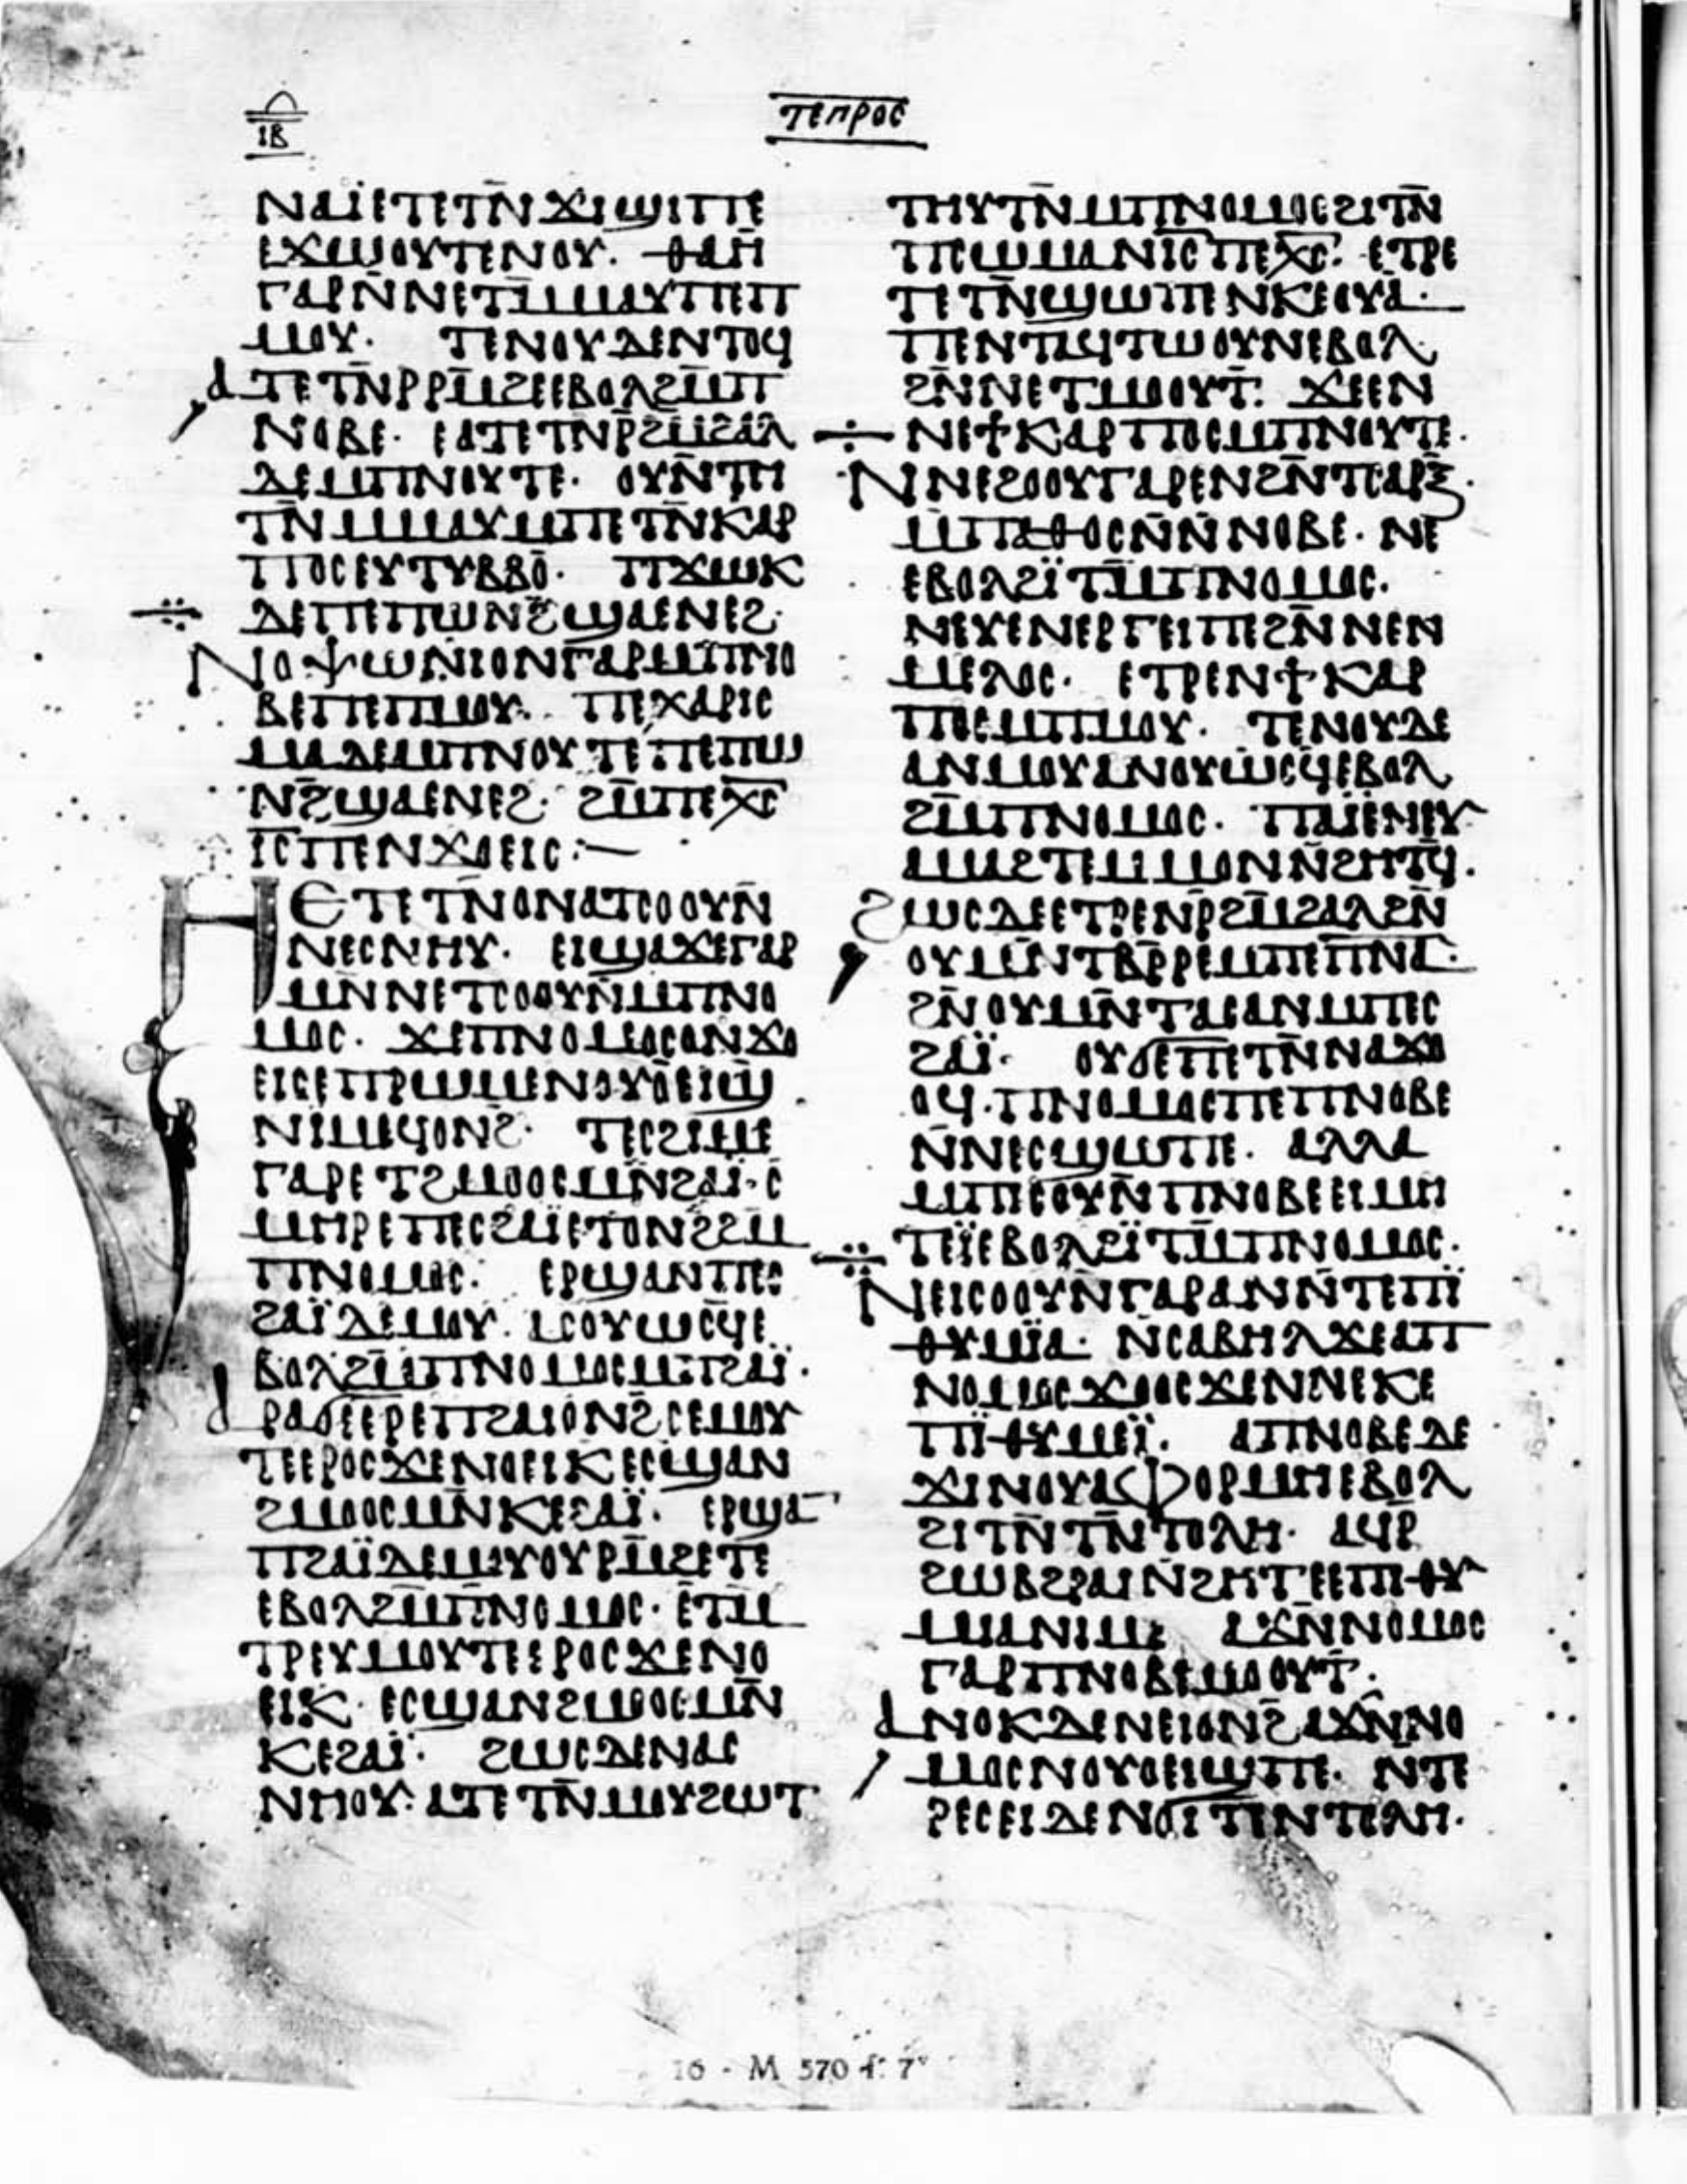 ⲓⲃ
ⲧⲉⲡⲣⲟⲥ
ⲛⲁⲓ̈ⲉⲧⲉⲧⲛ̄ϫⲓϣⲓⲡⲉ
ⲉϫⲱⲟⲩⲧⲉⲛⲟⲩ· ⲑⲁⲏ
ⲅⲁⲣⲛ̄ⲛⲉⲧⲙ̄ⲙⲁⲩⲡⲉⲡ
ⲙⲟⲩ· ⲧⲉⲛⲟⲩⲇⲉⲛⲧⲟϥ
ⲁⲧⲉⲧⲛ̄ⲣⲣⲙ̄ϩⲉⲉⲃⲟⲗϩⲙ̄ⲡ
ⲛⲟⲃⲉ· ⲉⲁⲧⲉⲧⲛⲣ̄ϩⲙ̄ϩⲁⲗ
ⲇⲉⲙⲡⲛⲟⲩⲧⲉ· ⲟⲩⲛ̄ⲧⲏ
ⲧⲛ̄ⲙⲙⲁⲩⲙⲡⲉⲧⲛ̄ⲕⲁⲣ
ⲡⲟⲥⲉⲩⲧⲃ̄ⲃⲟ· ⲡϫⲱⲕ
ⲇⲉⲡⲉⲡⲱⲛϩ̄ϣⲁⲉⲛⲉϩ·
ⲛⲟⲯⲱⲛⲓⲟⲛⲅⲁⲣⲙ̄ⲡⲛⲟ
ⲃⲉⲡⲉⲡⲙⲟⲩ· ⲡⲉⲭⲁⲣⲓⲥ
ⲙⲁⲇⲉⲙⲡⲛⲟⲩⲧⲉⲡⲉⲡⲱ
ⲛϩ̄ϣⲁⲉⲛⲉϩ· ϩⲙ̄ⲡⲉⲭ̄ⲥ̄
ⲓ̄ⲥ̄ⲡⲉⲛϫⲟⲉⲓⲥ:—
ⲏⲉⲧⲉⲧⲛ̄ⲟⲛⲁⲧⲥⲟⲟⲩⲛ̄
ⲛⲉⲥⲛⲏⲩ· ⲉⲓϣⲁϫⲉⲅⲁⲣ
ⲙⲛ̄ⲛⲉⲧⲥⲟⲟⲩⲛ̄ⲙⲡⲛⲟ
ⲙⲟⲥ· ϫⲉⲡⲛⲟⲙⲟⲥⲟⲛϫⲟ
ⲉⲓⲥⲉⲡⲣⲱⲙⲉⲛⲟⲩⲟⲉⲓϣ
ⲛⲓⲙⲉϥⲟⲛϩ̄· ⲧⲉⲥϩⲓⲙⲉ
ⲅⲁⲣⲉⲧϩⲙⲟⲟⲥⲙⲛ̄ϩⲁⲓ̈·ⲥ
ⲙⲏⲣⲉⲡⲉⲥϩⲁⲓ̈ⲉⲧⲟⲛϩ̄ϩⲙ
ⲡⲛⲟⲙⲟⲥ· ⲉⲣϣⲁⲛⲡⲉⲥ
ϩⲁⲓ̈ⲇⲉⲙⲟⲩ· ⲁⲥⲟⲩⲱⲥϥ̄ⲉ
ⲃⲟⲗϩⲙ̄ⲡⲛⲟⲙⲟⲥⲙⲡϩⲁⲓ̈·
ⲁⲣⲁϭⲉⲉⲣⲉⲡϩⲁⲓⲟⲛϩ̄ⲥⲉⲙⲟⲩ
ⲧⲉⲉⲣⲟⲥϫⲉⲛⲟⲉⲓⲕⲉⲥϣⲁⲛ
ϩⲙⲟⲟⲥⲙⲛ̄ⲕⲉϩⲁⲓ̈· ⲉⲣϣⲁ̄
ⲡϩⲁⲓ̈ⲇⲉⲙⲟⲩⲟⲩⲣⲙ̄ϩⲉⲧⲉ
ⲉⲃⲟⲗϩⲙ̄ⲡⲛⲟⲙⲟⲥ· ⲉⲧⲙ̄
ⲧⲣⲉⲩⲙⲟⲩⲧⲉⲉⲣⲟⲥϫⲉⲛⲟ
ⲉⲓⲕ· ⲉⲥϣⲁⲛϩⲙⲟⲟⲥⲙⲛ̄
ⲕⲉϩⲁⲓ̈· ϩⲱⲥⲇⲉⲛⲁⲥ
ⲛⲏⲟⲩ· ⲁⲧⲉⲧⲛ̄ⲙⲟⲩϩⲱⲧ
ⲧⲏⲩⲧⲛ̄ⲙⲡⲛⲟⲙⲟⲥϩⲓⲧⲛ̄
ⲡⲥⲱⲙⲁⲛⲓ̄ⲥ̄ⲡⲉⲭ̄ⲥ̄· ⲉⲧⲣⲉ
ⲧⲉⲧⲛ̄ϣⲱⲡⲉⲛⲕⲉⲟⲩⲁ·
ⲡⲉⲛⲧⲁϥⲧⲱⲟⲩⲛⲉⲃⲟⲗ
ϩⲛ̄ⲛⲉⲧⲙⲟⲟⲩⲧ· ϫⲉⲉⲛ
ⲛⲉϯⲕⲁⲣⲡⲟⲥⲙⲡⲛⲟⲩⲧⲉ·
ⲛⲛⲉϩⲟⲟⲩⲅⲁⲣⲉⲛϩⲛ̄ⲧⲥⲁⲣⲝ̄·
ⲙⲡⲁⲑⲟⲥⲛ̄ⲛ̄ⲛⲟⲃⲉ· ⲛⲉ
ⲉⲃⲟⲗϩⲓ̈ⲧⲙ̄ⲡⲛⲟⲙⲟⲥ·
ⲛⲉⲩⲉⲛⲉⲣⲅⲉⲓⲡⲉϩⲛ̄ⲛⲉⲛ
ⲙⲉⲗⲟⲥ· ⲉⲧⲣⲉⲛϯⲕⲁⲣ
ⲡⲟⲥⲙⲡⲙⲟⲩ· ⲧⲉⲛⲟⲩⲇⲉ
ⲁⲛⲙⲟⲩⲁⲛⲟⲩⲱⲥϥⲉⲃⲟⲗ
ϩⲙ̄ⲡⲛⲟⲙⲟⲥ· ⲡⲁⲓ̈ⲉⲛⲉⲩ
ⲁⲙⲁϩⲧⲉⲙⲙⲟⲛⲛ̄ϩⲏⲧϥ̄·
ϩⲱⲥⲇⲉⲉⲧⲣⲉⲛⲣ̄ϩⲙ̄ϩⲁⲗϩⲛ̄
ⲟⲩⲙⲛ̄ⲧⲃ̄ⲣ̄ⲣⲉⲙⲡⲉⲡ̄ⲛ̄ⲁ̄·
ϩⲛ̄ⲟⲩⲙⲛ̄ⲧⲁⲥⲁⲛⲙⲡⲉⲥ
ϩⲁⲓ̈· ⲟⲩϭⲉⲡⲉⲧⲛ̄ⲛⲁϫⲟ
ⲟϥ·ⲡⲛⲟⲙⲟⲥⲡⲉⲡⲛⲟⲃⲉ
ⲛ̄ⲛⲉⲥϣⲱⲡⲉ· ⲁⲗⲗⲁ
ⲙⲡⲓⲥⲟⲩⲛ̄ⲡⲛⲟⲃⲉⲉⲓⲙⲏ
ⲧⲉⲓ̈ⲉⲃⲟⲗϩⲓ̈ⲧⲙ̄ⲡⲛⲟⲙⲟⲥ·
ⲛⲉⲓⲥⲟⲟⲩⲛ̄ⲅⲁⲣⲁⲛⲛ̄ⲧⲉⲡⲓ̈
ⲑⲩⲙⲓ̈ⲁ· ⲛ̄ⲥⲁⲃⲏⲗϫⲉⲁⲡ
ⲛⲟⲙⲟⲥϫⲟⲟⲥϫⲉⲛⲛⲉⲕⲉ
ⲡⲓ̈ⲑⲩⲙⲉⲓ̈· ⲁⲡⲛⲟⲃⲉⲇⲉ
ϫⲓⲛⲟⲩⲁⲫⲟⲣⲙⲏⲉⲃⲟⲗ
ϩⲓⲧⲛ̄ⲧⲛ̄ⲧⲟⲗⲏ· ⲁϥⲣ̄
ϩⲱⲃϩⲣⲁⲓⲛ̄ϩⲏⲧⲉⲉⲡⲓⲑⲩ
ⲙⲓⲁⲛⲓⲙ· ⲁϫⲛ̄ⲛⲟⲙⲟⲥ
ⲅⲁⲣⲡⲛⲟⲃⲉⲙⲟⲟⲩⲧ·
ⲁⲛⲟⲕⲇⲉⲛⲉⲓⲟⲛϩ̄ⲁϫⲛ̄ⲛⲟ
ⲙⲟⲥⲛⲟⲩⲟⲉⲓϣⲡⲉ· ⲛⲧⲉ
ⲣⲉⲥⲉⲓⲇⲉⲛϭⲓⲧⲉⲛⲧⲟⲗⲏ·
16 - M 570 f. 7ᵛ